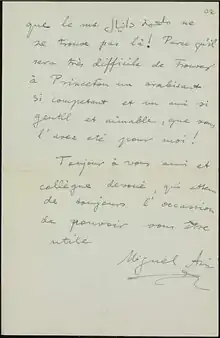 02
que le ms دلالة ne
se trouve pas là! Parce qu'il
sera très difficile de trouver
à Princeton un arabisant
si competent et un ami si
gentil et aimable, que vous
l'avez eté pour moi!
Toujour à vous ami et
collègue devoué, qui atten
de toujours l'occasion
de pouvoir vous être
utile
Miguel Asín